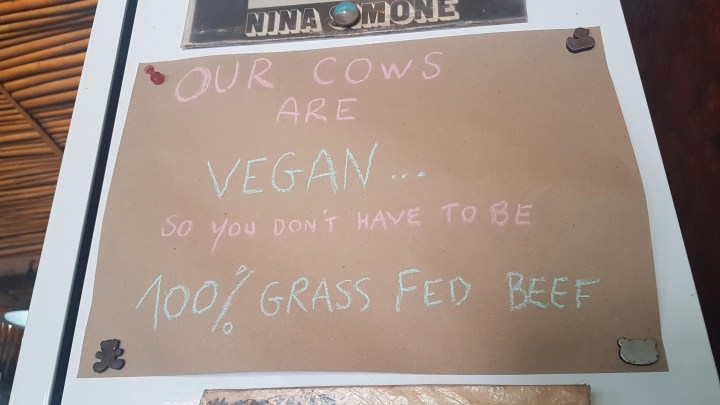 NINA SIMONE
OUR COWS
ARE
VEGAN...
SO YOU DON'T HAVE TO BE
100% GRASS FED BEEF